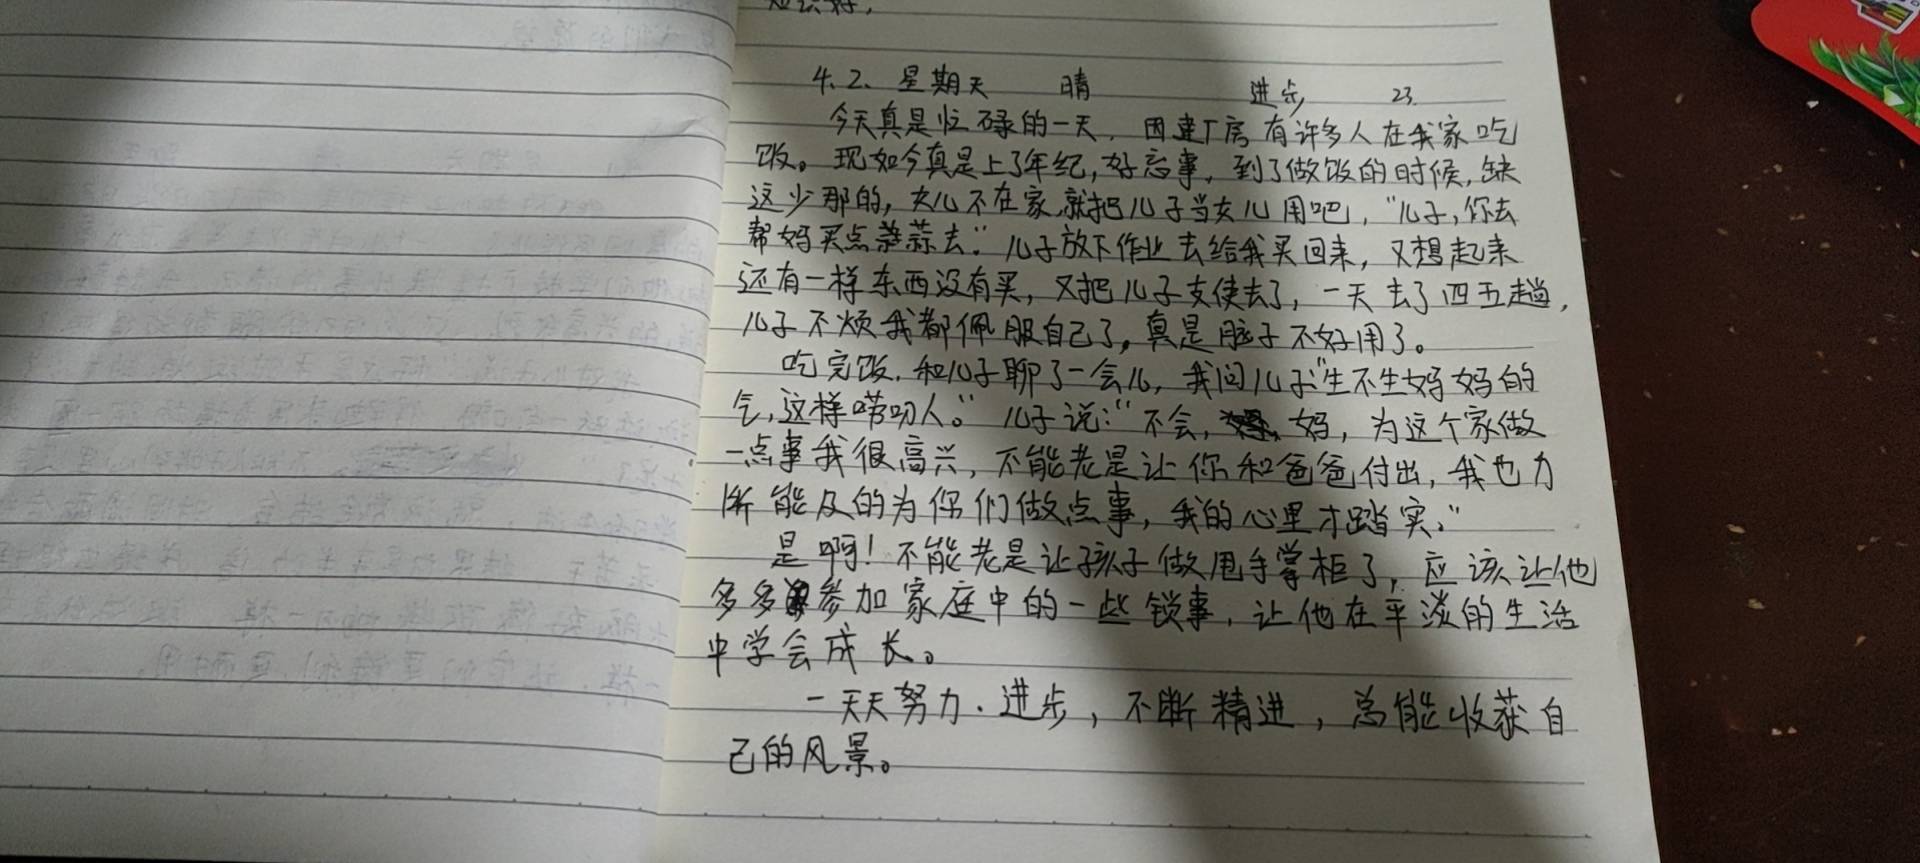 4.2. 星期天 晴 进步 23.
今天真是忙碌的一天，因建厂房有许多人在我家吃
饭。现如今真是上了年纪，好忘事，到了做饭的时候，缺
这少那的，女儿不在家，就把儿子当女儿用吧，“儿子，你去
帮妈买点蒜去。”儿子放下作业去给我买回来，又想起来
还有一样东西没有买，又把儿子支使去了，一天去了四五趟，
儿子不烦我都佩服自己了，真是脑子不好用了。
吃完饭，和儿子聊了一会儿，我问儿子“生不生妈妈的
气，这样唠叨人。”儿子说：“不会，妈，为这个家做
一点事我很高兴，不能老是让你和爸爸付出，我也力
所能及的为你们做点事，我的心里才踏实。”
是啊！不能老是让孩子做甩手掌柜了，应该让他
多多参加家庭中的一些锁事，让他在平淡的生活
中学会成长。
一天天努力．进步，不断精进，总能收获自
己的风景。